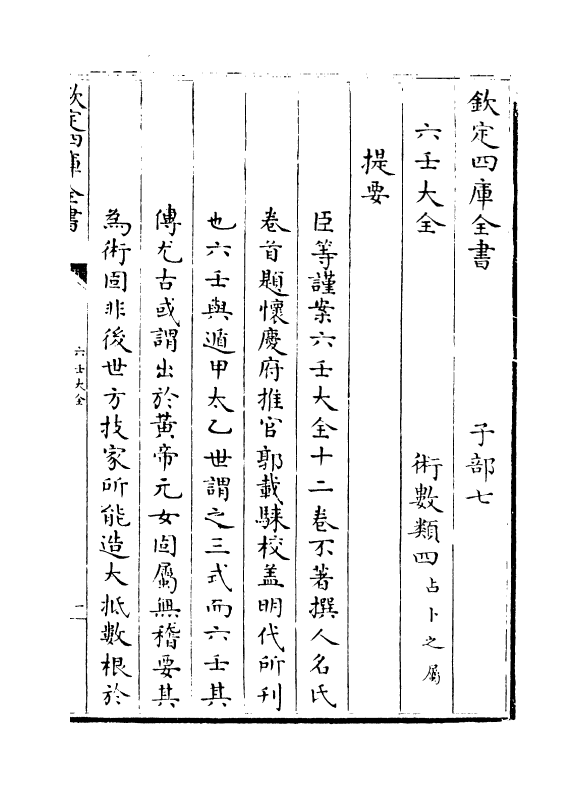 欽定四庫全書 子部七
六壬大全 術數類四占卜之屬
提要
臣等謹案六壬大全十二卷不著撰人名氏
卷首題懷慶府推官郭載騋校蓋明代所刊
也六壬與遁甲太乙世謂之三式而六壬其
傳尤古或謂出於黃帝元女固屬無稽要其
為術固非後世方技家所能造大抵數根於
欽定四庫全書
六壬大全